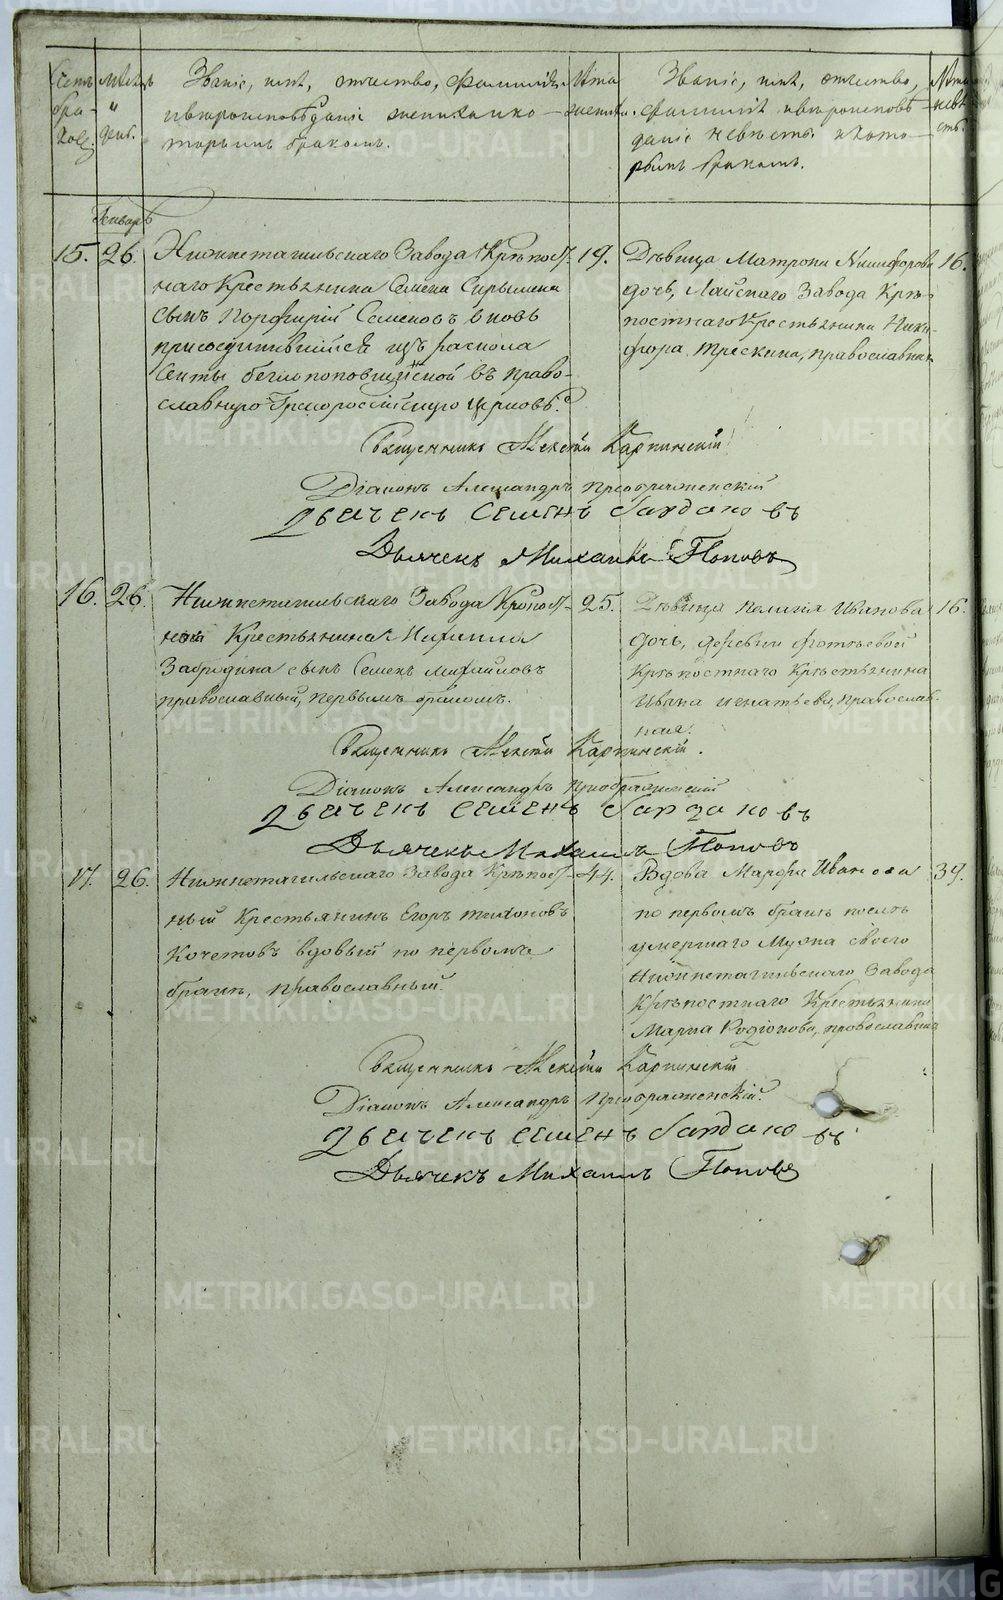 Счетъ бра-ковъ.
Мѣсяцъ и день.
Званіе, имя, отчество, фамилія
и вѣроисповѣданіе жениха и ко-
торымъ бракомъ.
Лѣта жениха.
Званіе, имя, отчество,
фамилія и вѣроисповѣ-
даніе невѣсты и кото-
рымъ бракомъ.
Лѣта невѣ-сты.
Генварь
15. 26. Нижнетагильскаго Завода Крѣпост-
наго Крестьянина Семена
сынъ Порфирій Семеновъ вновь
присоединившійся изъ раскола
секты беглопоповщинской въ право-
славную Грекороссійскую церковь.
19.
Дѣвица Матрона Никифорова
дочь, Лайскаго Завода Крѣ-
постнаго Крестьянина Ники-
фора Трескина, православная
16.
Священникъ Алексѣй Карпинскій
Діаконъ Александръ Преображенскій
Дьячекъ Семенъ
Дьячекъ Михаилъ Поповъ
16. 26. Нижнетагильскаго Завода Крѣпост-
Крестьянина Михаила
Забродина сынъ Семенъ Михайловъ
православный, первымъ бракомъ.
25.
Дѣвица Иванова
дочь, деревни
Крѣпостнаго Крестьянина
Ивана Игнатьева, православ-
ная.
16.
Священникъ Алексѣй Карпинскій.
Діаконъ Александръ Преображенскій
Дьячекъ Семенъ
Дьячекъ Михаилъ Поповъ
17. 26. Нижнетагильскаго Завода Крѣпост-
ный Крестьянинъ Егоръ Тихоновъ
Кочетовъ вдовый по первомъ
бракѣ, православный.
44.
Вдова Марфа Иванова
по первомъ бракѣ послѣ
умершаго мужа своего
Нижнетагильскаго Завода
Крѣпостнаго Крестьянина
Марка Родіонова, православная
39.
Священникъ Алексѣй Карпинскій
Діаконъ Александръ Преображенскій.
Дьячекъ Семенъ
Дьячекъ Михаилъ Поповъ
METRIKI.GASO-URAL.RU